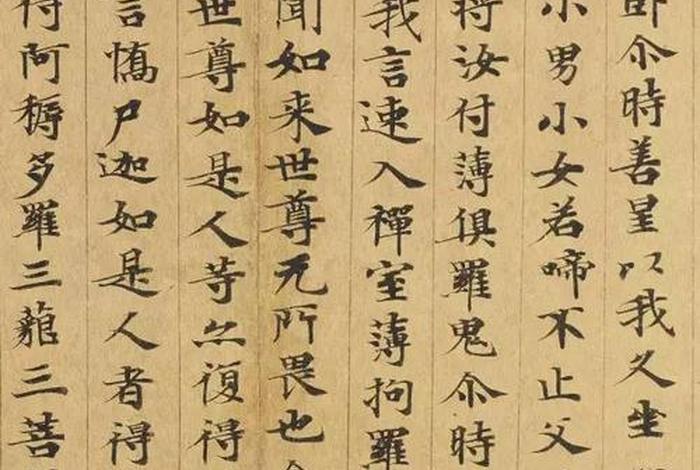 卧尒時善星以我久坐
小男小女若啼不止父
將汝付薄俱羅鬼尒時
我言速入禪室薄拘羅
聞如来世尊无所畏也
世尊如是人等亦復得
言憍尸迦如是人者得
得阿耨多羅三藐三菩